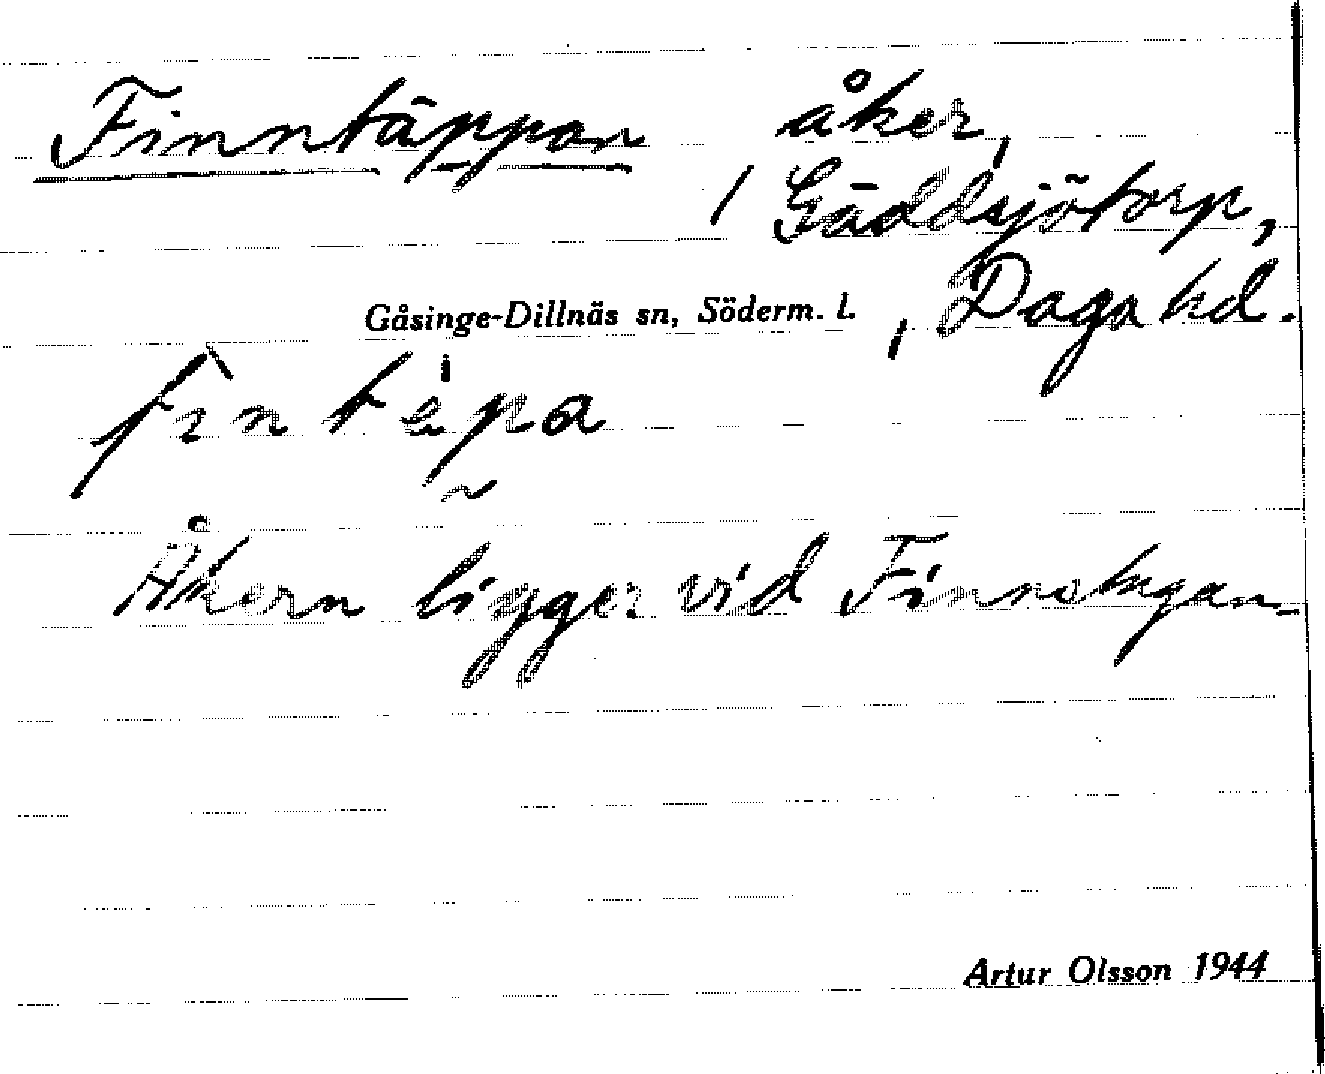 Finntäppan åker,
/ Gäddsjötorp,
Gåsinge-Dillnäs sn, Söderm. l. , Daga hd.
Åkern ligger vid Finnstugan_
Artur Olsson 1944